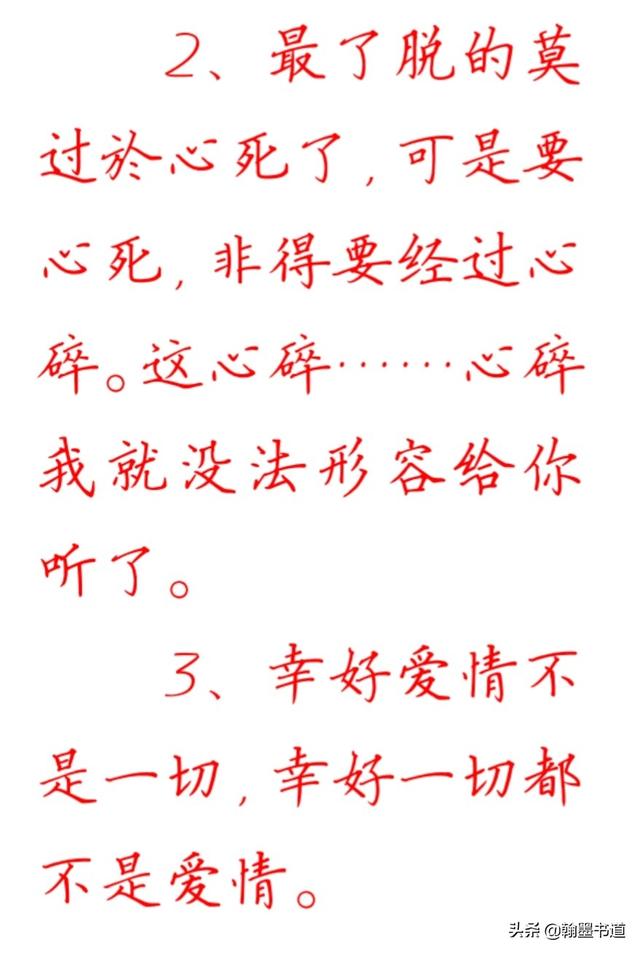 2、最了脱的莫
过於心死了，可是要
心死，非得要经过心
碎。这心碎……心碎
我就没法形容给你
听了。
3、幸好爱情不
是一切，幸好一切都
不是爱情。
头条 @翰墨书道